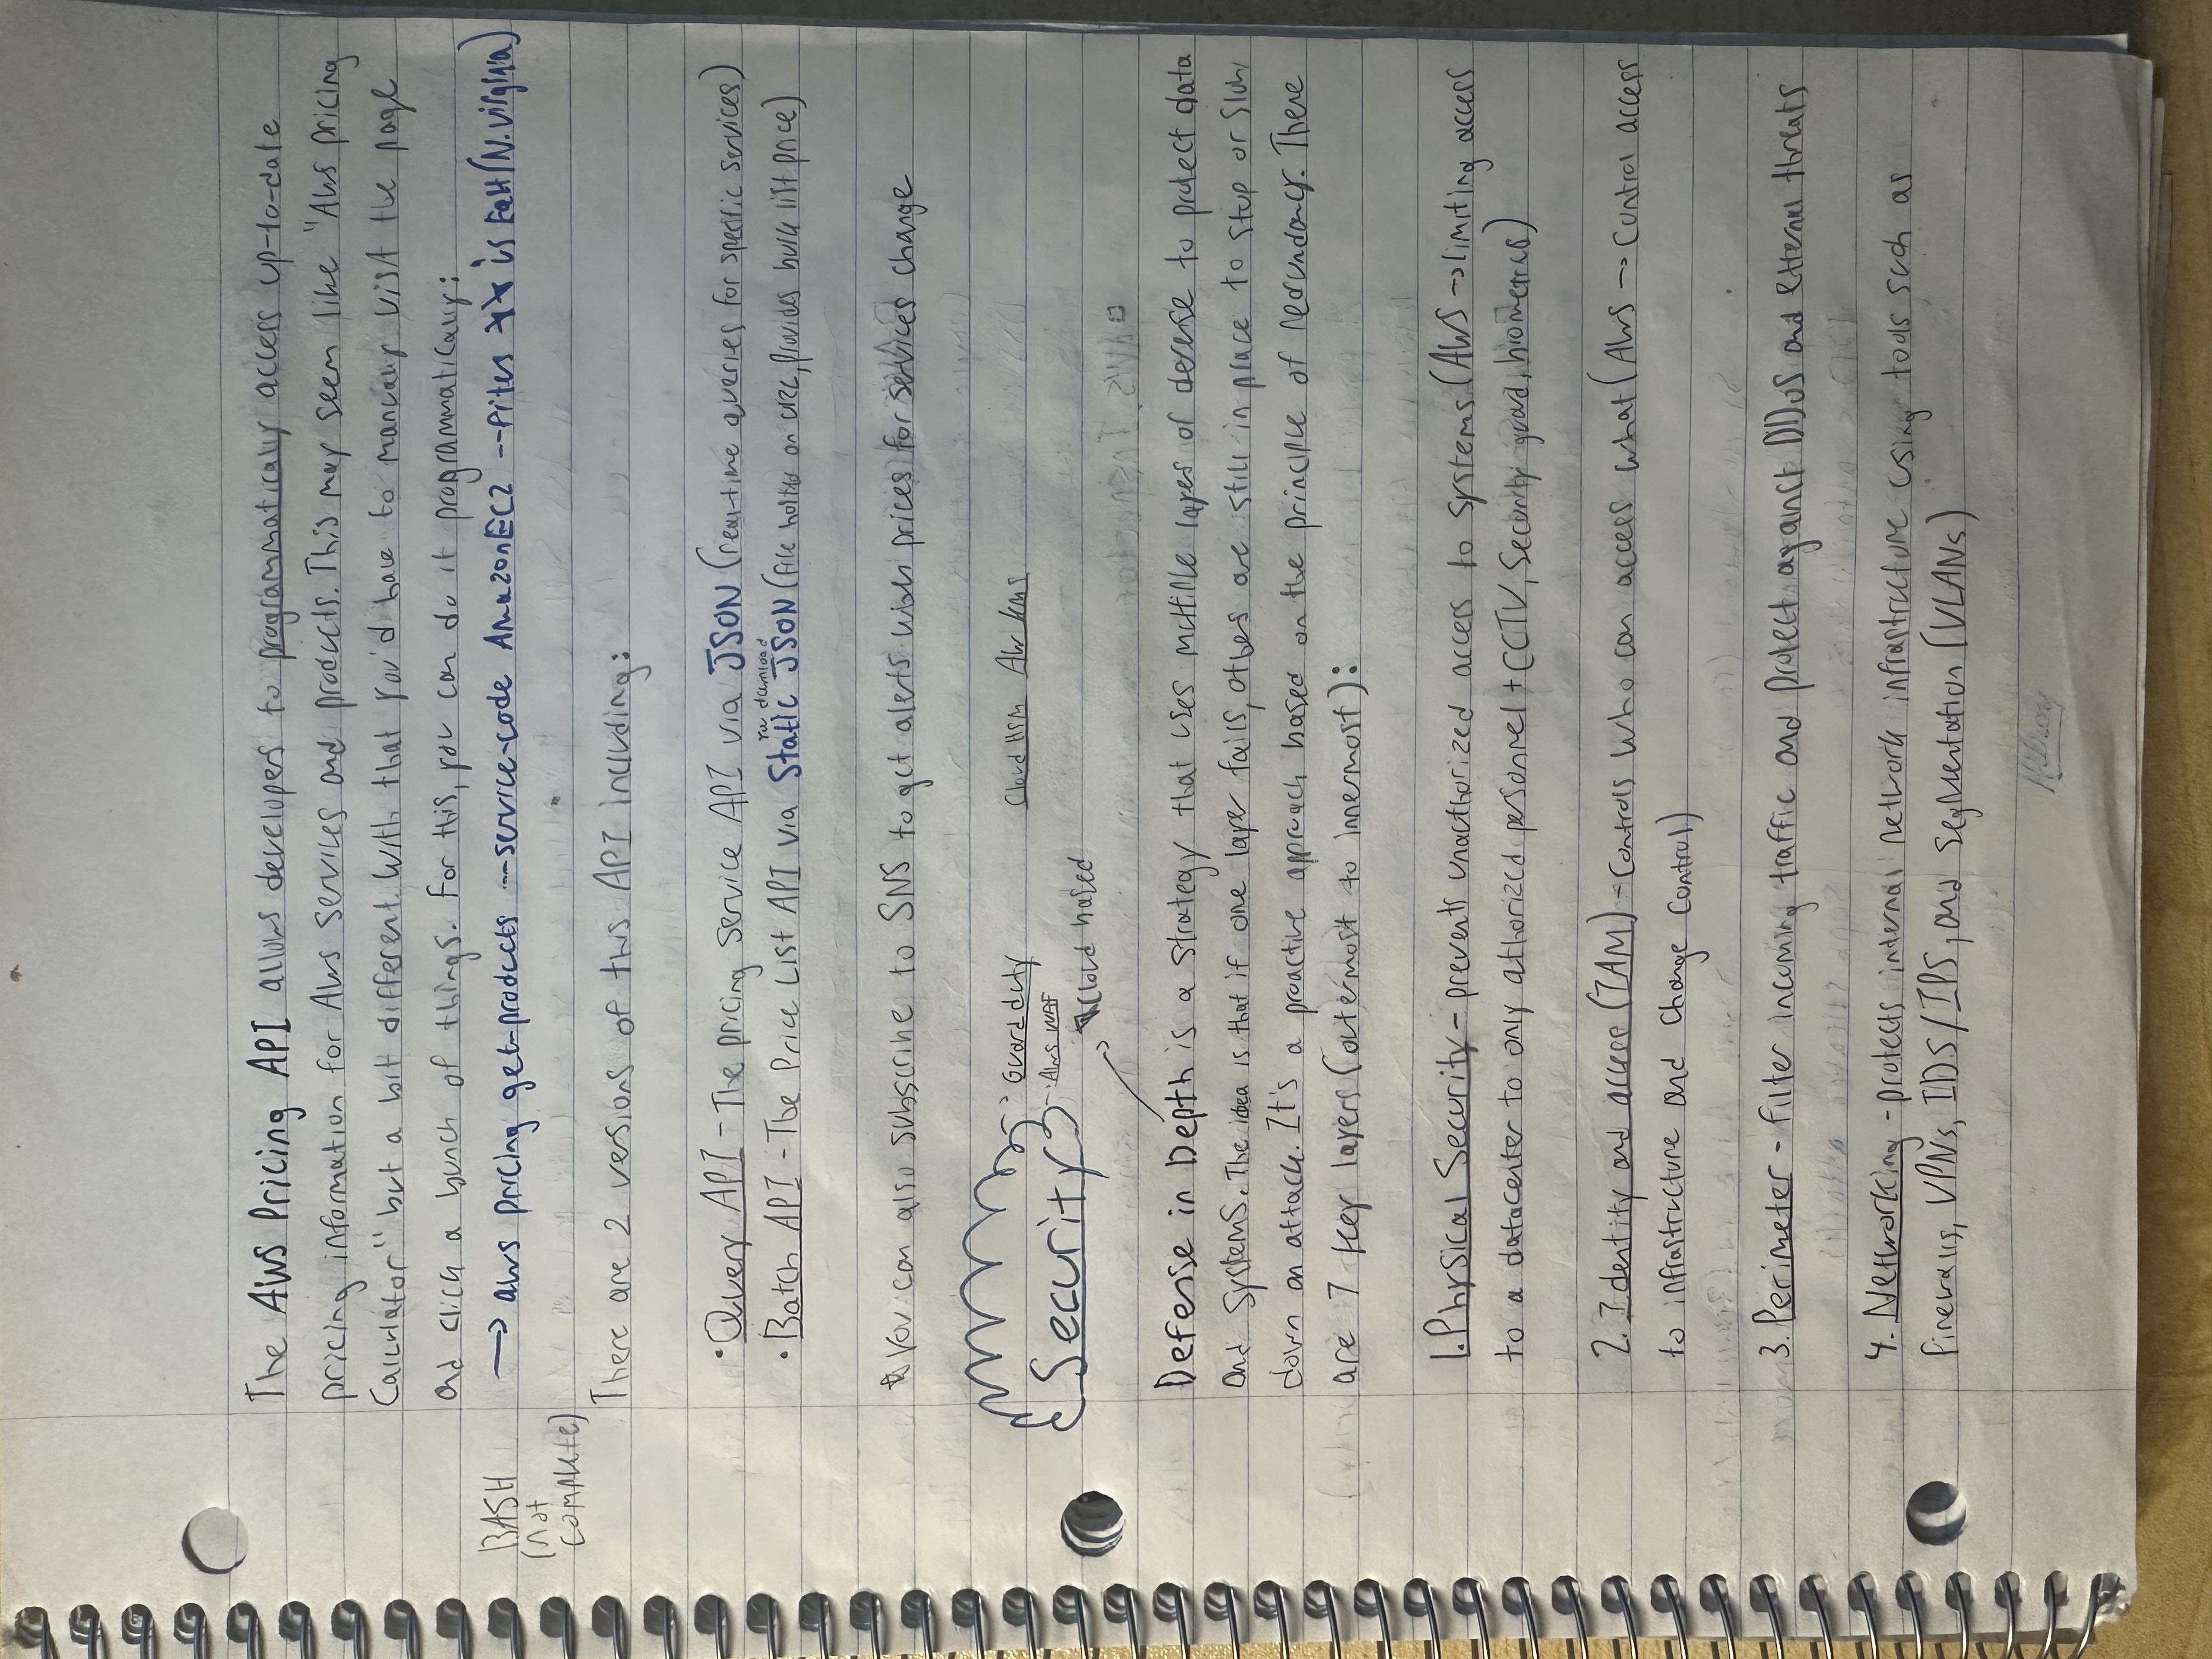 The AWS Pricing API allows developers to programmatically access up-to-date
pricing information for AWS services and products. This may seem like "AWS pricing
Calculator" but a bit different. With that you'd have to manually visit the page
and click a bunch of things. For this, you can do it programmatically:
BASH
(not
complete)
→ aws pricing get-products --service-code AmazonEC2 --filters ** is East (N. Virginia)
There are 2 versions of this API including:
• Query API - The pricing service API via JSON (real-time queries for specific services)
you download
• Batch API - The Price List API via Static JSON (file hosted on provides bulk list price)
☆ You can also subscribe to SNS to get alerts when prices for services change
Security
Guard duty
Cloud HSM AWS kms
AWS WAF
Cloud based
Defense in Depth is a strategy that uses multiple layers of defense to protect data
and systems. The idea is that if one layer fails, others are still in place to stop or slow
down an attack. It's a proactive approach based on the principle of redundancy. There
are 7 key layers (outermost to innermost):
1. Physical Security - prevents unauthorized access to systems (AWS → limiting access
to a datacenter to only athorized personnel + CCTV, security guard, biometrics)
2. Identity and access (IAM) - controls who can access what (AWS → control access
to infrastructure and change control)
3. Perimeter - filter incoming traffic and protect against DDoS and external threats
4. Networking - protects internal network infrastructure using tools such as
firewalls, VPNs, IDS/IPS, and segmentation (VLANs)
Hilroy